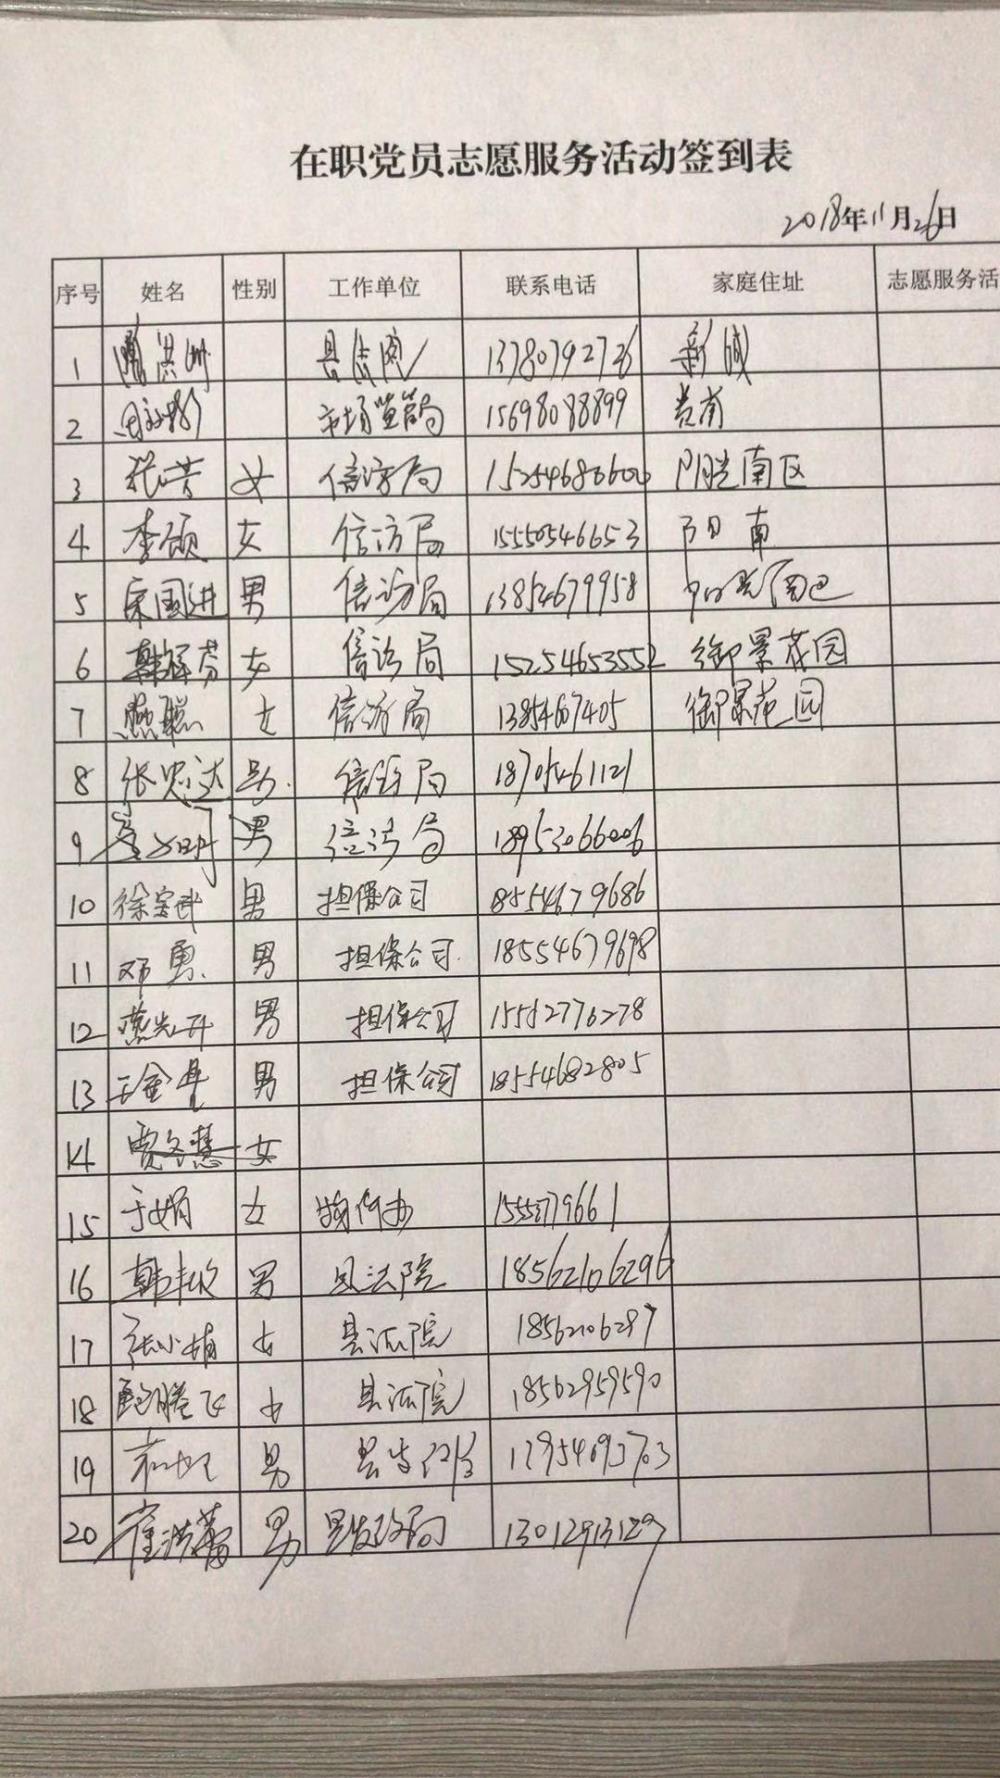 在职党员志愿服务活动签到表
2018年11月26日
序号 姓名 性别 工作单位 联系电话 家庭住址 志愿服务活
1 洪洲 13780792726 新城
2 市场监管局 15698088899 黄南
3 张芳 女 信访局 15254686604 胜南区
4 李颂 女 信访局 15550546653 阳南
5 宋国进 男 信访局 13854679958
6 韩绥芬 女 信访局 15254653552 御景花园
7 燕聪 女 信访局 1385467405 御景花园
8 张忠达 男 信访局 18705461121
9 男 信访局 18953066006
10 徐宝 男 担保公司 18554679686
11 邓勇 男 担保公司 18554679698
12 燕光 男 担保公司 15562776278
13 王金 男 担保公司 18554682805
14 贾冬慧 女
15 于娟 女
16 韩 男 县法院 18562106296
17 张小娟 女 县法院 18562106297
18 腾飞 女 县法院 18562959590
19 男
20 崔洪 男 县发改局 13012913129